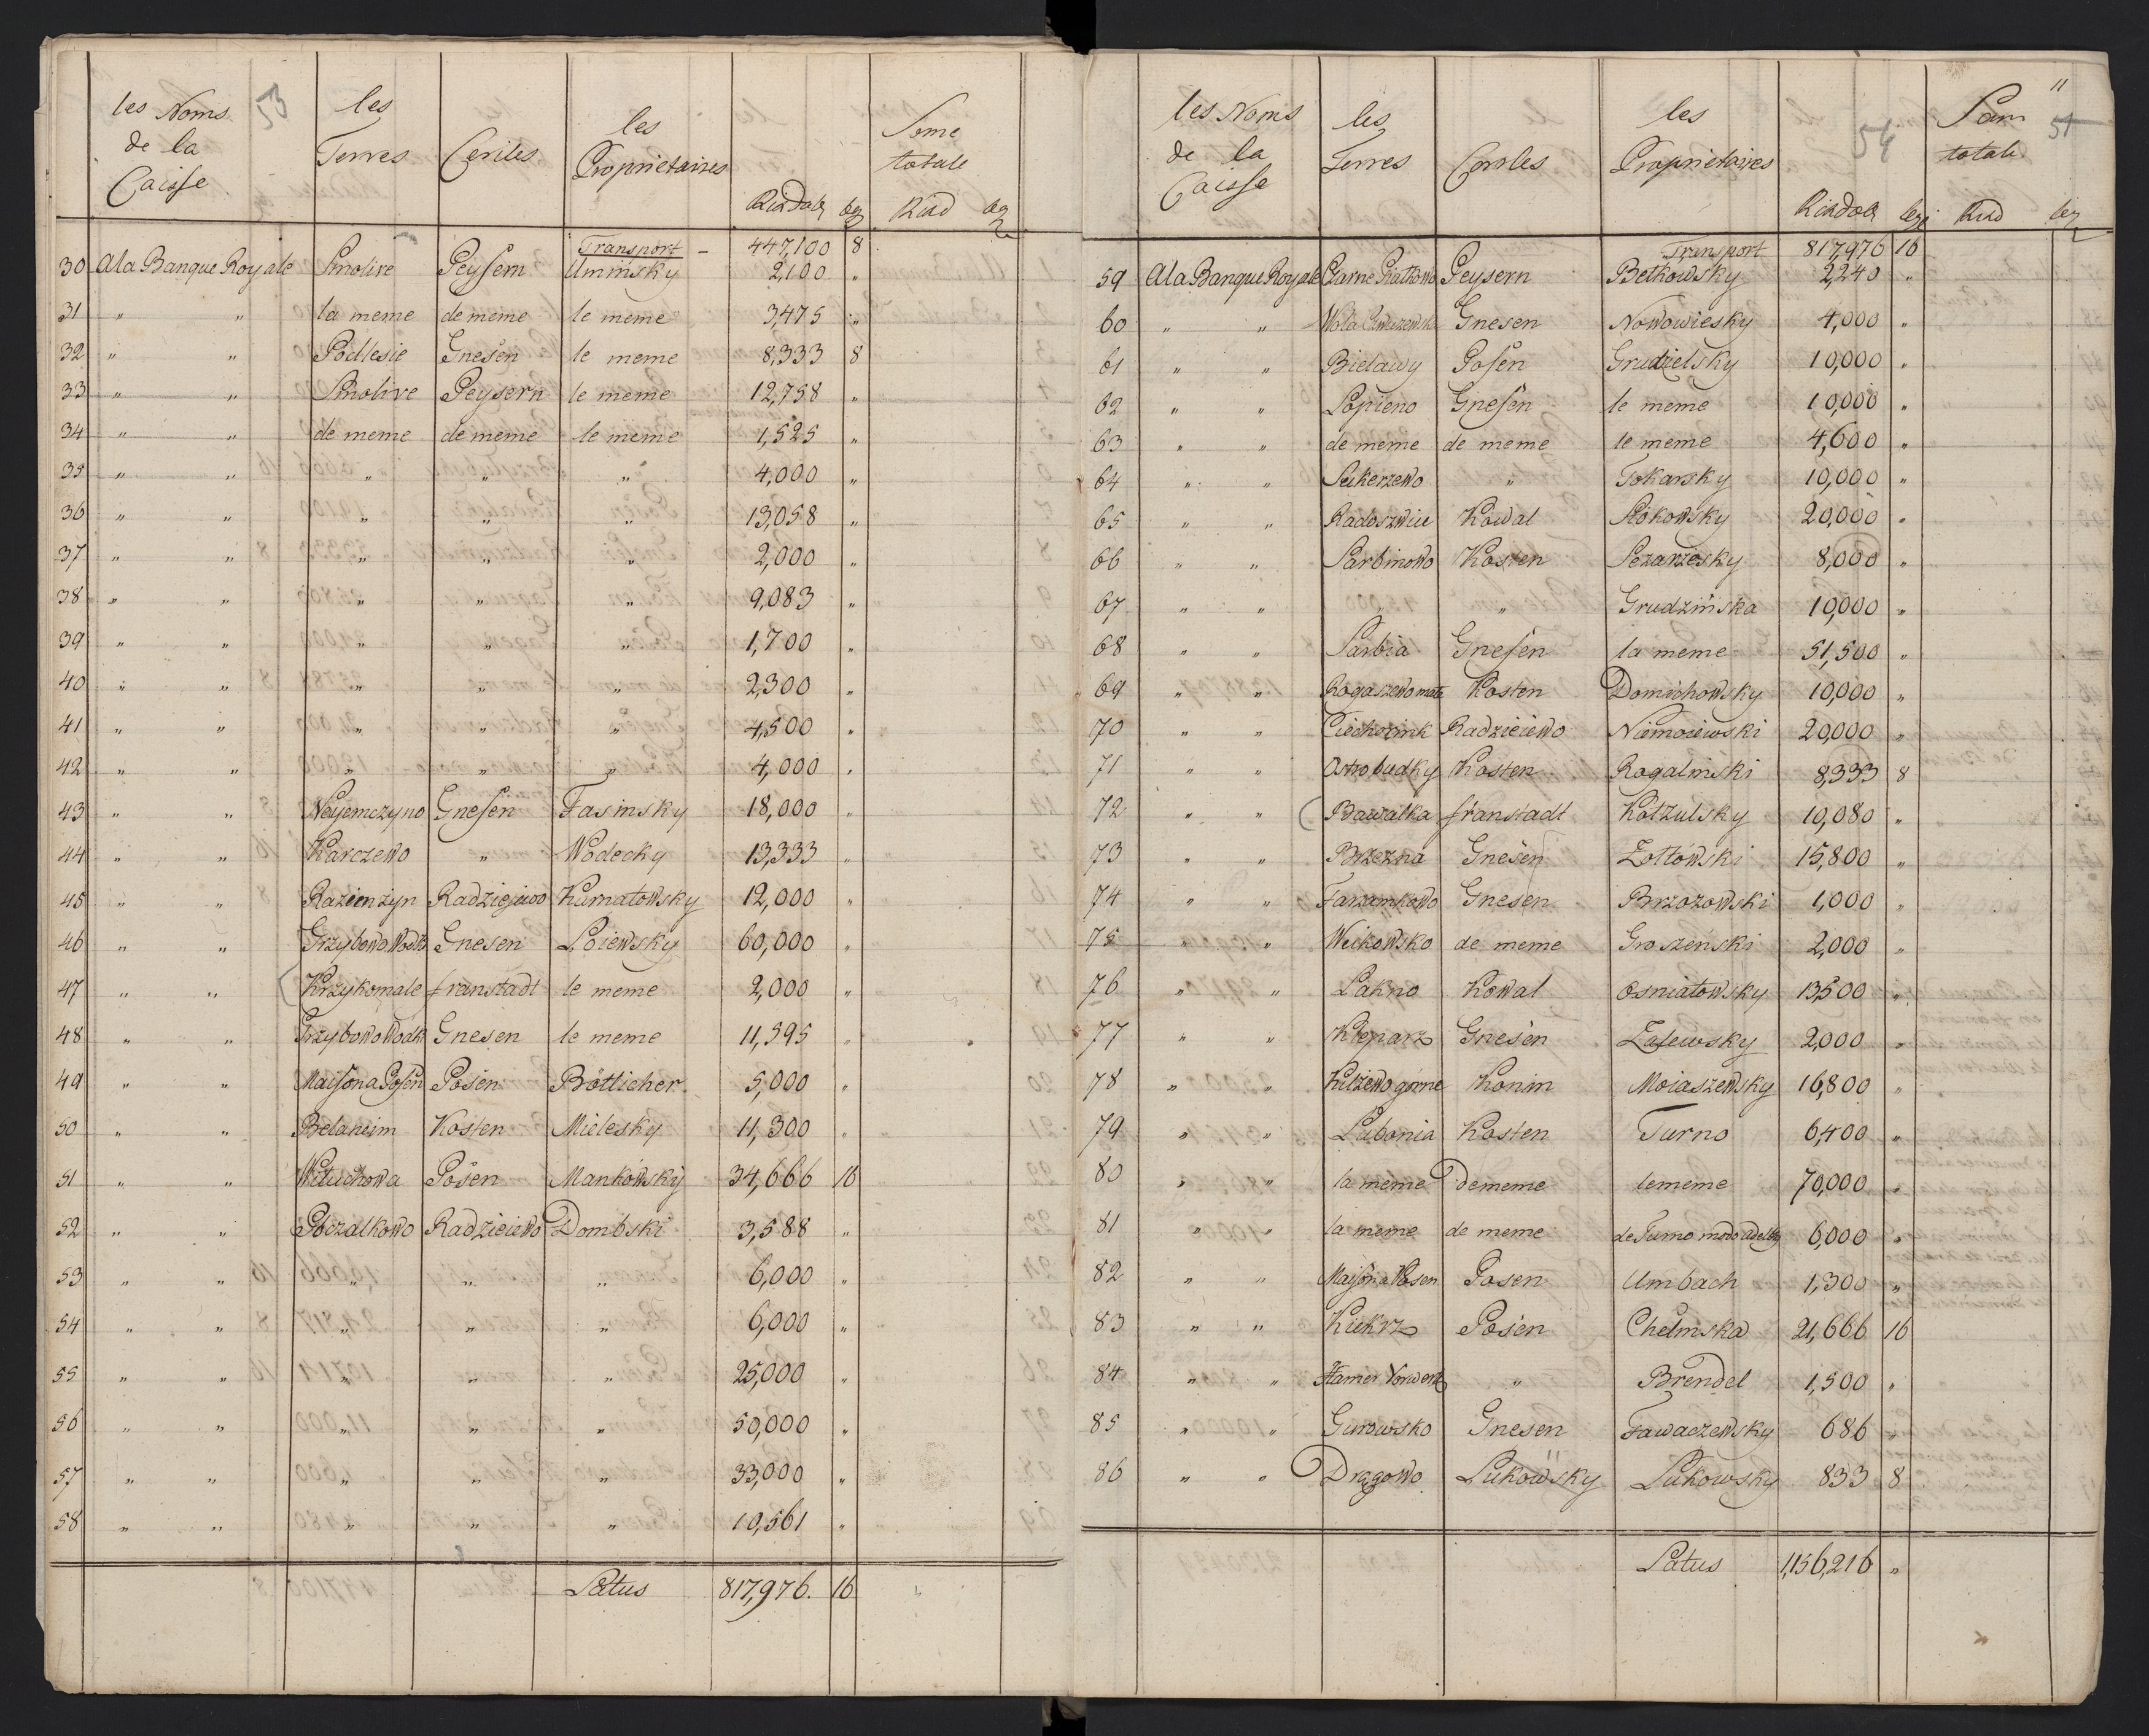 les Noms de la Caisse 53 les Terres Cercles les Proprietaires Rixdal bg Some totale Rixd bg
Transport - 447,100 8
30 Ala Banque Royale Smolire Peysern Uminsky 2,100 "
31 " " la meme de meme le meme 3,475 "
32 " " Podlesie Gnesen le meme 8,333 8
33 " " Smolire Peysern le meme 12,758 "
34 " " de meme de meme le meme 1,525 "
35 " " " " " 4,000 "
36 " " " " " 13,058 "
37 " " " " " 2,000 "
38 " " " " " 9,083 "
39 " " " " " 1,700 "
40 " " " " " 2,300 "
41 " " " " " 4,500 "
42 " " " " " 4,000 "
43 " " Neyemczyno Gnesen Fasinsky 18,000 "
44 " " Karczewo " Wodecky 13,333 "
45 " " Razienzyn Radziejewo Kurnatowsky 12,000 "
46 " " Grzybowo Wodk Gnesen Loiewsky 60,000 "
47 " " Krzykomale franstadt le meme 2,000 "
48 " " Grzybowo Wodk Gnesen le meme 11,595 "
49 " " Maison a Posen Posen Böttlicher 5,000 "
50 " " Belaneim Kosten Mielesky 11,300 "
51 " " Wituchowa Posen Mankowsky 34,666 16
52 " " Pobzalkowo Radzieiewo Dombski 3,588 "
53 " " " " " 6,000 "
54 " " " " " 6,000 "
55 " " " " " 25,000 "
56 " " " " " 50,000 "
57 " " " " " 33,000 "
58 " " " " " 10,561 "
Latus 817,976. 16
les Noms de la Caisse les Terres Cercles les Proprietaires 54 Rixdal bg Som totale Rixd bg 11 51
Transport 817,976 16
59 Ala Banque Royale Czarne Piatkowo Peysern Betkowsky 2,240 "
60 " " Wola Gnesen Nowowiesky 4,000 "
61 " " Bielawy Posen Grudzielsky 10,000 "
62 " " Lopieno Gnesen le meme 10,000 "
63 " " de meme de meme le meme 4,600 "
64 " " Sukerzewo " Tokarsky 10,000 "
65 " " Radoszwice Kowal Slokowsky 20,000 "
66 " " Sarbinowo Kosten Pezarzesky 8,000 "
67 " " " " Grudzinska 10,000 "
68 " " Sarbia Gnesen la meme 51,500 "
69 " " Rogaszewo mate Kosten Domichowsky 10,000 "
70 " " Ciechozink Radzieiewo Niemoiewski 20,000 "
71 " " Ostrobudky Kosten Rogalinski 8,333 8
72 " " Bawalka franstadt Kotzulsky 10,080 "
73 " " Brzezna Gnesen Zoltowski 15,800 "
74 " " Farzamkowo Gnesen Brzozowski 1,000 "
75 " " Weikowsko de meme Groszenski 2,000 "
76 " " Lakno Kowal Osniatowsky 13,500 "
77 " " Kleparz Gnesen Zalewsky 2,000 "
78 " " Kilzewo gorne Konin Moiaszewsky 16,800 "
79 " " Lubonia Kosten Turno 6,400 "
80 " " la meme de meme le meme 70,000 "
81 " " la meme de meme de Turno modo 6,000 "
82 " " Maison a Posen Posen Umbach 1,300 "
83 " " Kiekrz Posen Chelmska 21,666 16
84 " " Hamer Vorwerk " Brendel 1,500 "
85 " " Gurowsko Gnesen Fawaczewsky 686 "
86 " " Dragowo Lukowsky Lukowsky 833 8
Latus 1,156,216 "